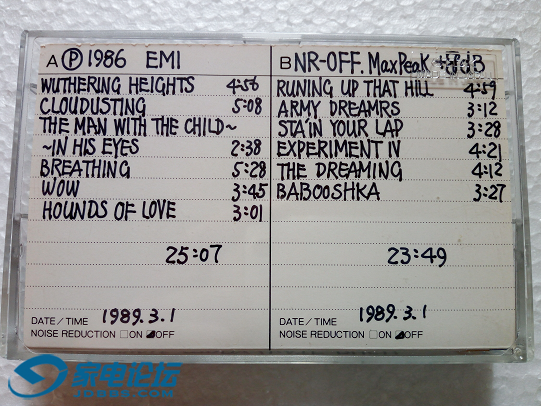 A Ⓟ 1986 EMI
WUTHERING HEIGHTS 4:56
CLOUDUSTING 5:08
THE MAN WITH THE CHILD~
~IN HIS EYES 2:38
BREATHING 5:28
WOW 3:45
HOUNDS OF LOVE 3:01
25:07
DATE/TIME 1989.3.1
NOISE REDUCTION □ON ☑OFF
B NR-OFF. MaxPeaK +8dB
RUNING UP THAT HILL 4:59
ARMY DREAMRS 3:12
STA'IN YOUR LAP 3:28
EXPERIMENT IV 4:21
THE DREAMING 4:12
BABOOSHKA 3:27
23:49
DATE/TIME 1989.3.1
NOISE REDUCTION □ON ☑OFF
家电论坛
JDBBS.COM